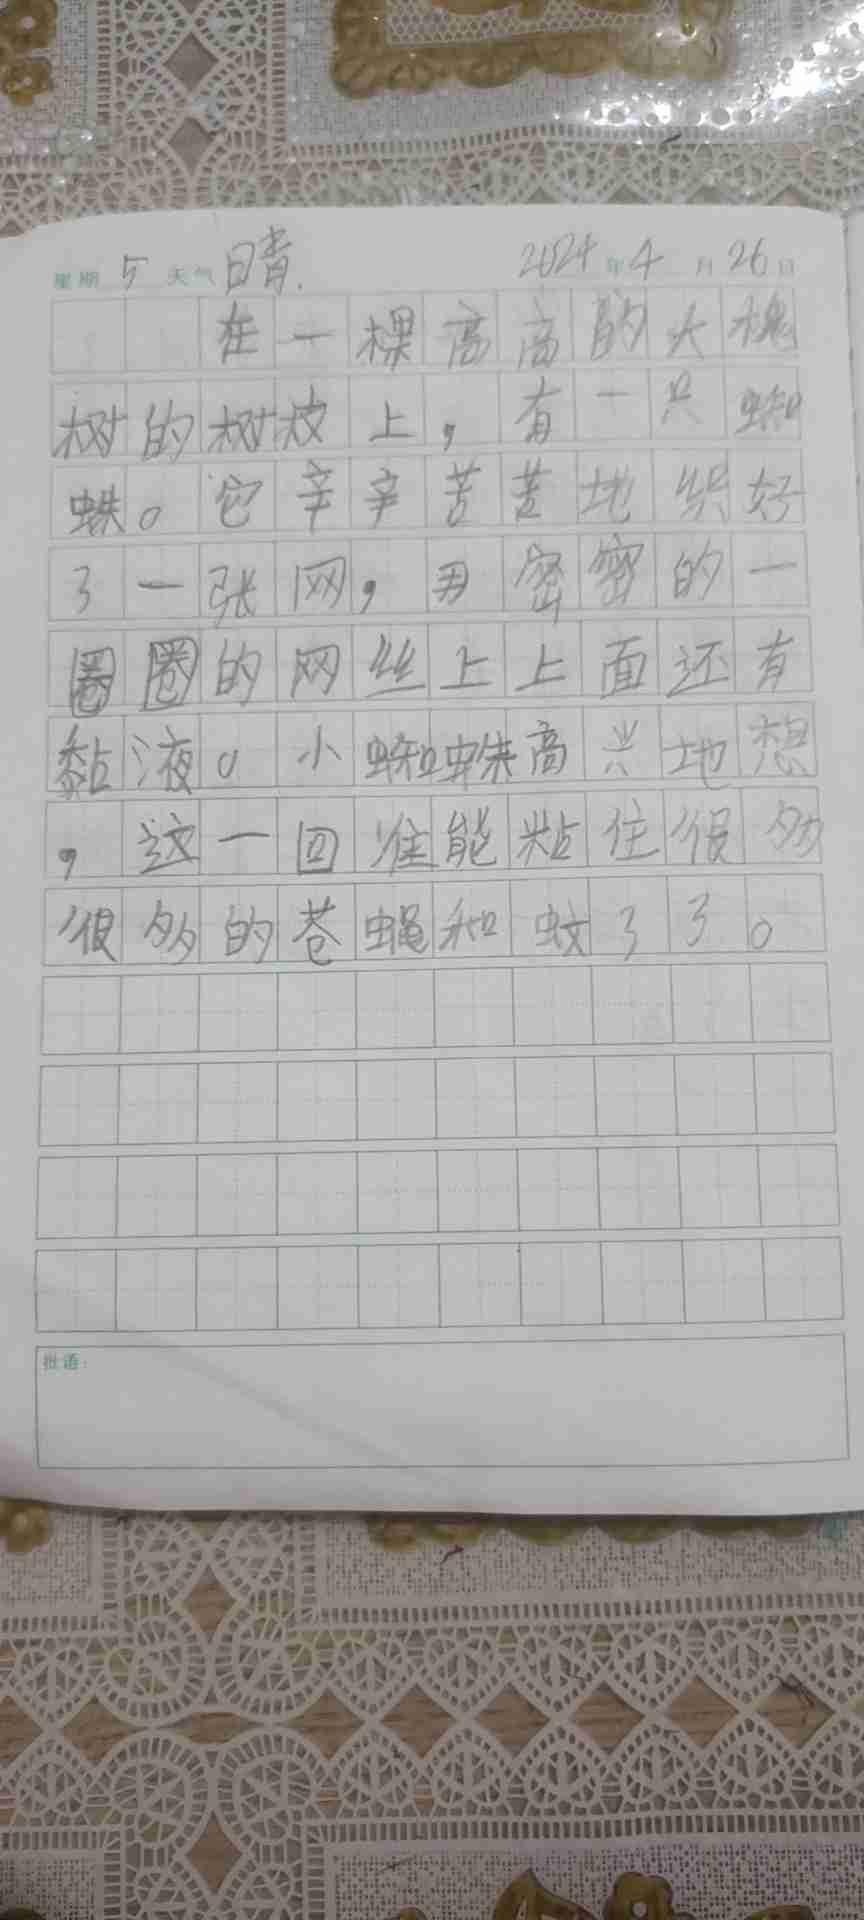 星期 5 天气 晴. 2024 年 4 月 26 日
在一棵高高的大槐
树的树皮上，有一只蜘
蛛。它辛辛苦苦地织好
了一张网，用密密的一
圈圈的网丝上上面还有
黏液。小蜘蛛高兴地想
，这一回准能粘住很多
很多的苍蝇和蚊了了。
批语：